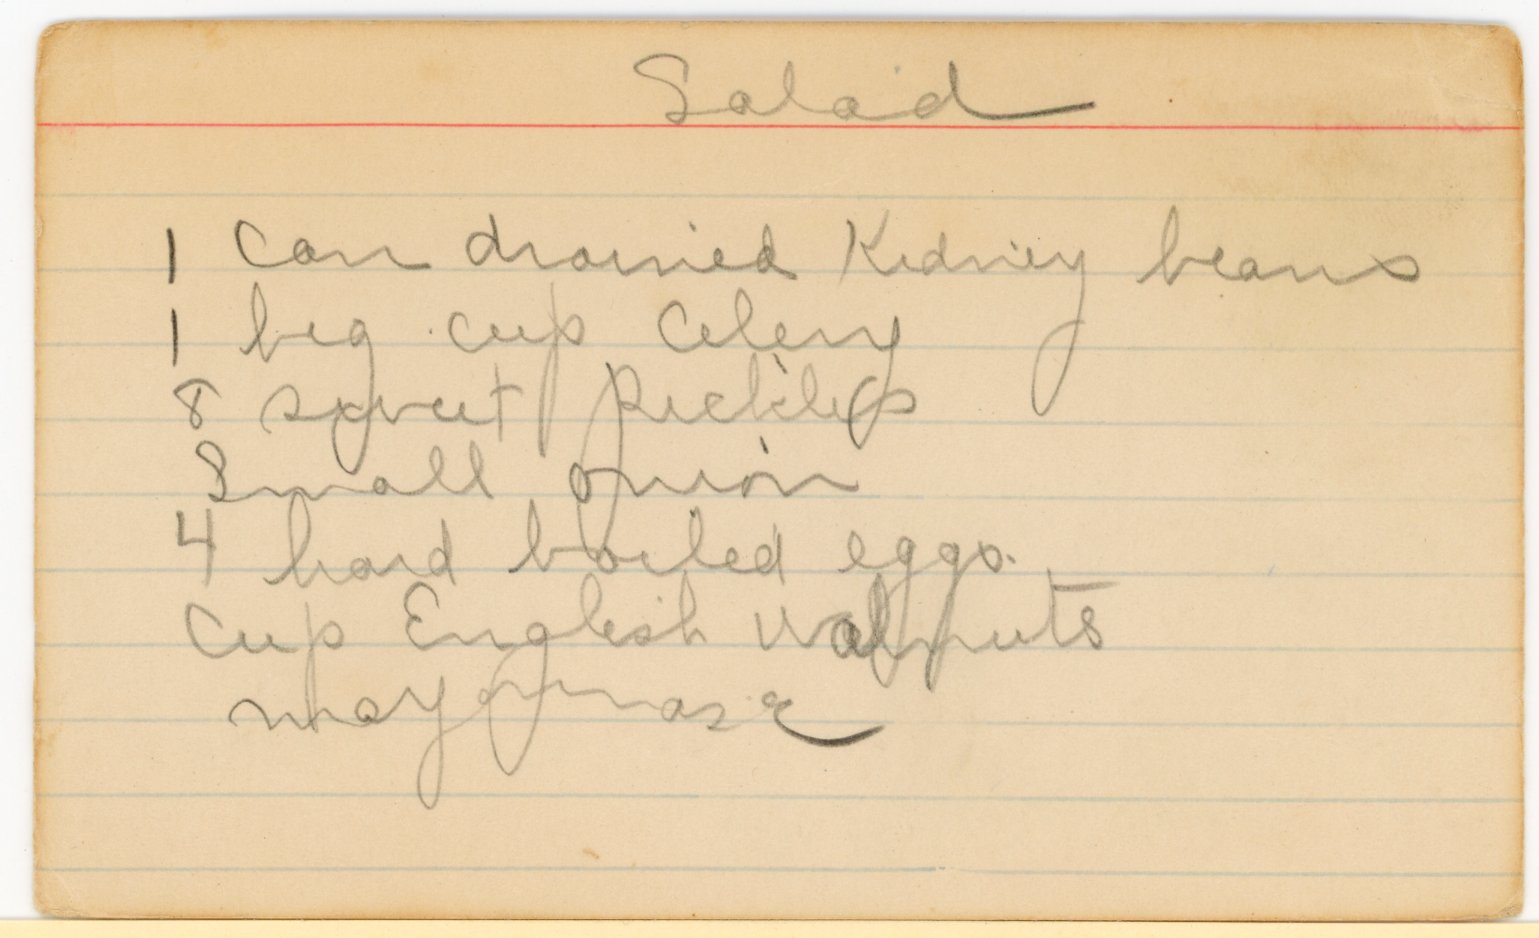 Salad
1 Can drained Kidney beans
1 big cup Celery
8 sweet pickles
Small onion
4 hard boiled eggs.
Cup English Walnuts
mayonase